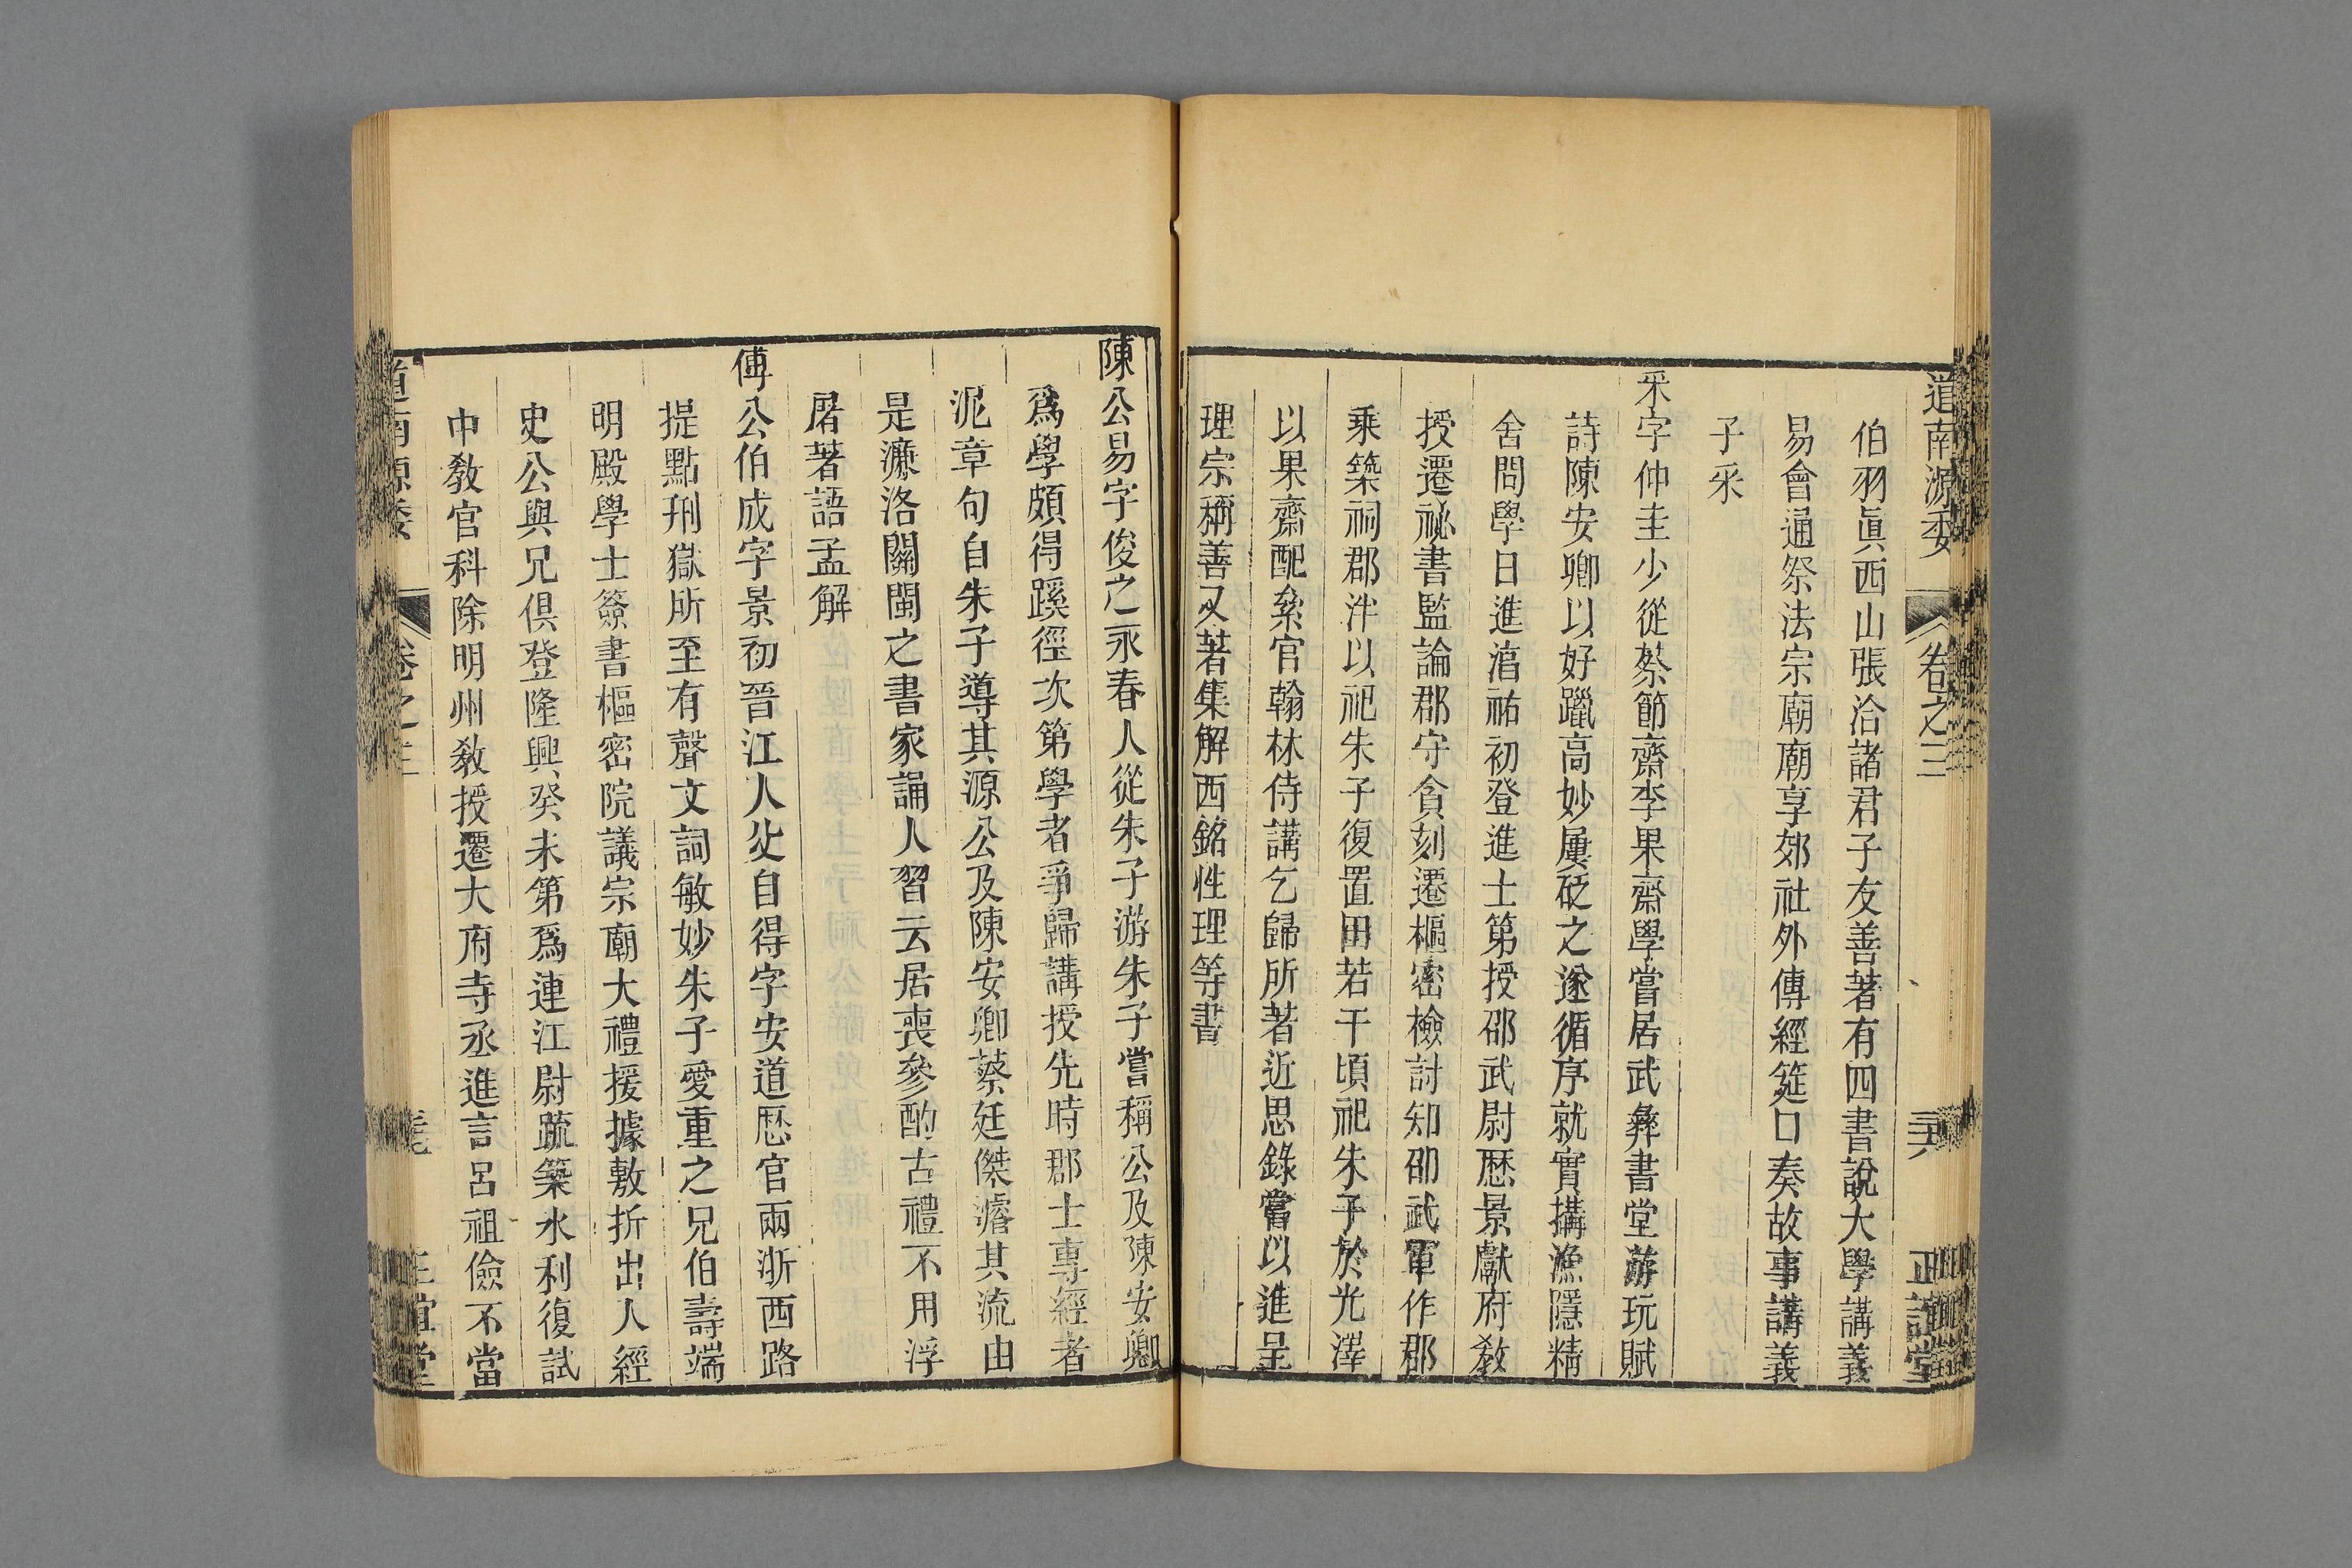 道南源委 卷之三 三六 正誼堂
伯羽眞西山張洽諸君子友善著有四書說大學講義
易會通祭法宗廟廟享郊社外傳經筵口奏故事講義
子采
采字仲圭少從蔡節齋李果齋學嘗居武彝書堂游玩賦
詩陳安卿以好躐高妙屢砭之遂循序就實搆漁隱精
舍問學日進淳祐初登進士第授邵武尉歷景獻府敎
授遷祕書監論郡守貪刻遷樞密檢討知邵武軍作郡
乘築祠郡泮以祀朱子復置田若干頃祀朱子於光澤
以果齋配絫官翰林侍講乞歸所著近思錄嘗以進呈
理宗稱善又著集解西銘性理等書
陳公易字俊之永春人從朱子游朱子嘗稱公及陳安卿
爲學頗得蹊徑次第學者爭歸講授先時郡士專經者
泥章句自朱子導其源公及陳安卿蔡廷傑濬其流由
是濂洛關閩之書家誦人習云居喪參酌古禮不用浮
屠著語孟解
傅公伯成字景初晉江人父自得字安道歷官兩浙西路
提點刑獄所至有聲文詞敏妙朱子愛重之兄伯壽端
明殿學士簽書樞密院議宗廟大禮援據敷折出人經
史公與兄俱登隆興癸未第爲連江尉疏築水利復試
中敎官科除明州敎授遷大府寺丞進言呂祖儉不當
道南源委 卷之三 正誼堂